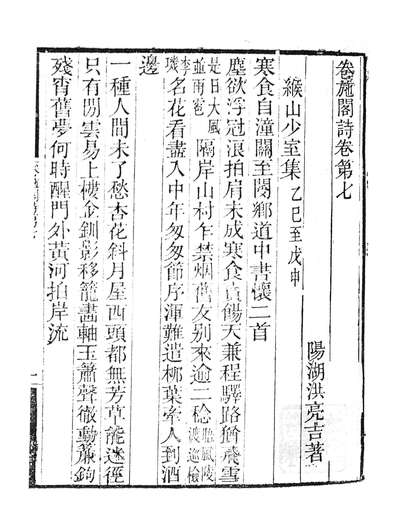 卷施閣詩卷第七
陽湖洪亮吉著
緱山少室集乙巳至戊申
寒食自潼關至閿鄉道中書懷二首
塵欲浮冠浪拍肩未成寒食賣餳天兼程驛路猶飛雪
是日大風並雨雹隔岸山村乍禁烟舊友別來逾二稔陵渡巡檢
李璣名花看盡入中年匆匆節序渾難遣柳葉牽人到酒
邊
一種人間未了愁杏花斜月屋西頭都無芳草能迷徑
只有閒雲易上樓金釧影移籠畫軸玉簫聲徹動簾鉤
殘宵舊夢何時醒門外黃河拍岸流